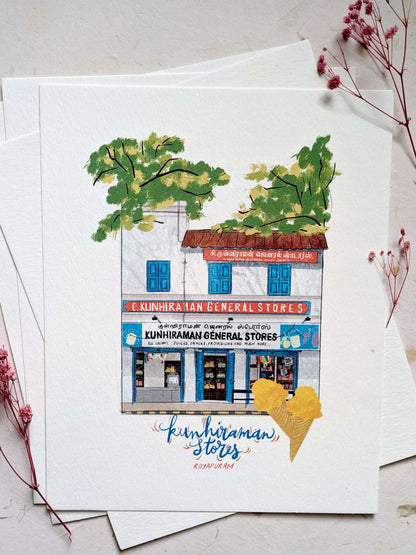 சி.குன்ஹிராமன் ஜெனரல் ஸ்டோர்ஸ்.
C.KUNHIRAMAN GENERAL STORES
குன்ஹிராமன் ஜெனரல் ஸ்டோர்ஸ்
KUNHIRAMAN GENERAL STORES
ICE CREAMS, JUICES, SNACKS, PROVISIONS AND MUCH MORE...
kunhiraman
stores
ROYAPURAM